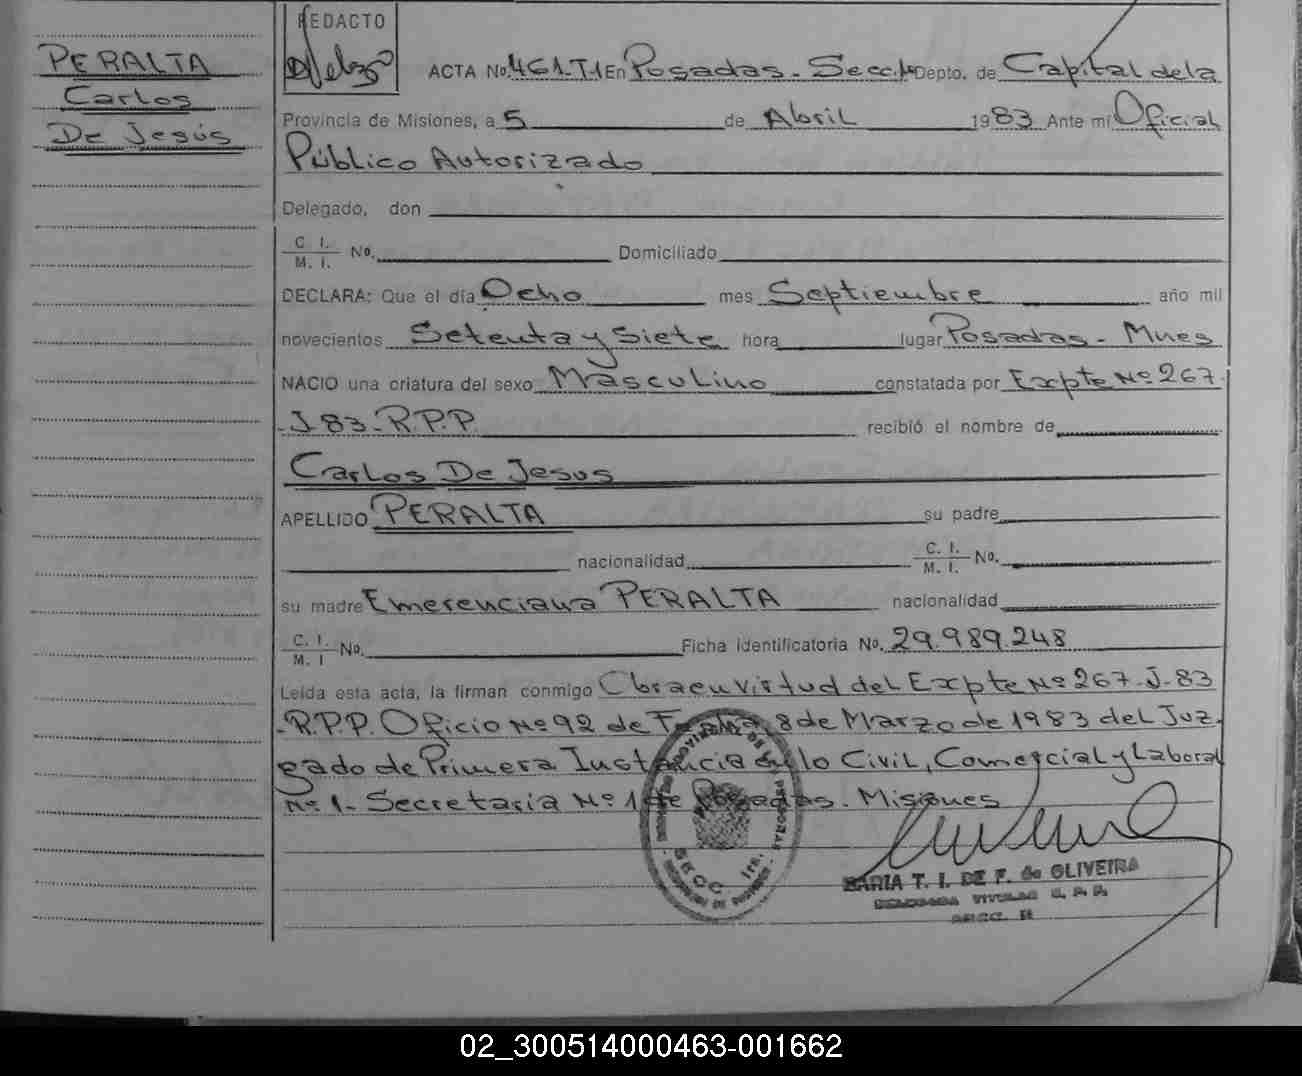 PERALTA
Carlos
De Jesús
REDACTO
ACTA No. 461-T.1 En Posadas - Secc. Depto. de Capital de la
Provincia de Misiones, a 5 de Abril 1983 Ante mí Oficial
Público Autorizado
Delegado, don
C. I.
M. I. No. Domiciliado
DECLARA: Que el día Ocho mes Septiembre año mil
novecientos Setenta y Siete hora lugar Posadas - Mnes
NACIO una criatura del sexo Masculino constatada por Expte Nº 267.
J.83-R.P.P. recibió el nombre de
Carlos De Jesus
APELLIDO PERALTA su padre
nacionalidad C. I.
M. I. No.
su madre Emerenciana PERALTA nacionalidad
C. I.
M. I No. Ficha identificatoria No. 29.989.248
Leída esta acta, la firman conmigo Obra en virtud del Expte Nº 267-J-83
-R.P.P. Oficio Nº 92 de Fecha 8 de Marzo de 1983 del Juz-
gado de Primera Instancia en lo Civil, Comercial y Laboral
Nº 1- Secretaria Nº 1 de Posadas - Misiones
SECC. 1ra.
MARIA T. I. DE F. de OLIVEIRA
DELEGADA TITULAR R. P. P.
02_300514000463-001662